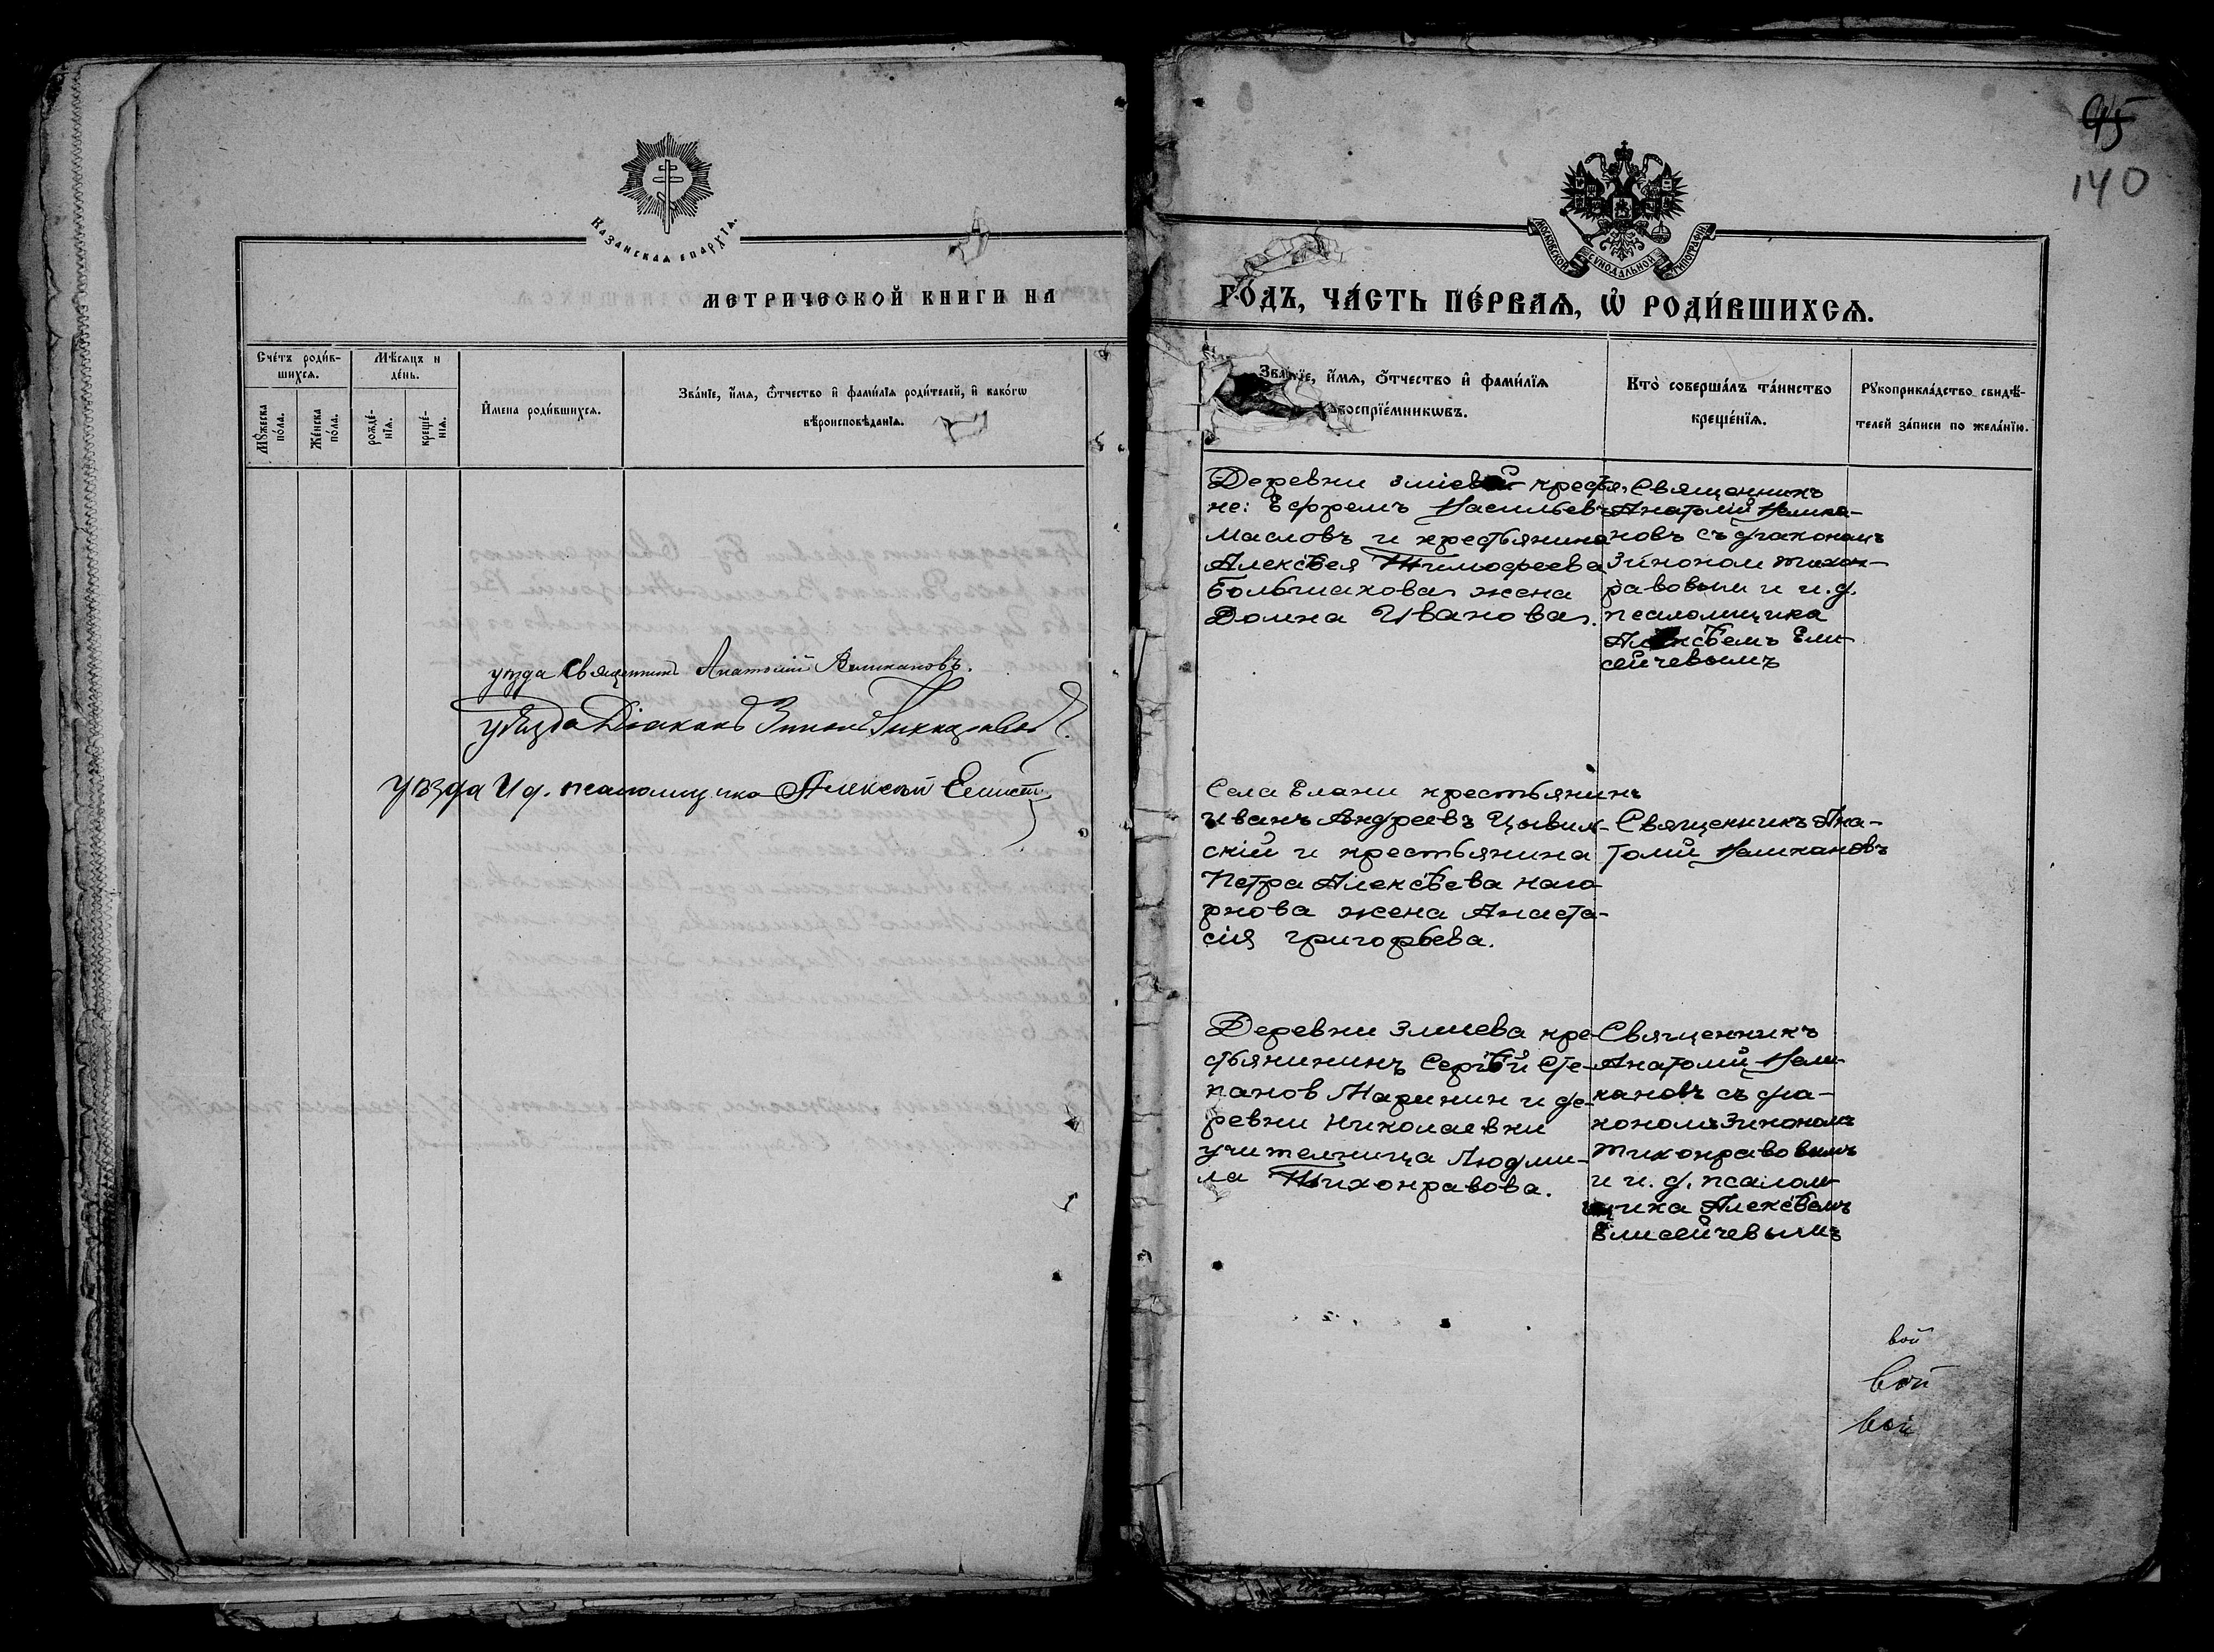 Казанская епархія.
МЕТРИЧЕСКОЙ КНИГИ НА
Счетъ родив-
шихся.
Мѣсяцъ и
день.
Мужеска
пола.
Женска
пола.
рожде-
нія.
креще-
нія.
Имена родившихся.
Званіе, имя, отчество и фамилія родителей, и какогѡ
вѣроисповѣданія.
уѣзда Священникъ Анатолій Великановъ.
уѣзда Діаконъ Зинонъ
уѣзда И д. псаломщика Алексѣй
95
140
МОСКОВСКОЙ СѴНОДАЛЬНОЙ ТИПОГРАФІИ
ГОДЪ, ЧАСТЬ ПЕРВАЯ, Ѡ РОДИВШИХСЯ.
Званіе, имя, отчество и фамилія
воспріемникѡвъ.
Кто совершалъ таинство
крещенія.
Рукоприкладство свидѣ-
телей записи по желанію.
Деревни Зміевой крестья,
не: Ефремъ Васильевъ
Масловъ и крестьянина
Алексѣя Тимофеева
Большакова жена
Домна Иванова.
Священникъ
Анатолій Велика-
новъ съ діакономъ
Зинономъ Тихон-
равовым и и. д.
псаломщика
Алексѣемъ Ели
сейчевымъ
Села Елани крестьянинъ
Иванъ Андреевъ Цывил-
скій и крестьянина
Петра Алексѣева Наго
рнова жена Анаста-
сія Григорьева.
Священникъ Ана-
толій Великановъ
Деревни Змиева кре-
стьянинъ Сергѣй Сте-
панов Маринин и де-
ревни Николаевки
учителница Людми-
ла Тихонравова.
Священникъ
Анатолій Вели-
кановъ съ діа-
кономъ Зинономъ
Тихонравовымъ
и и. д. псалом
щика Алексѣемъ
Елисейчевымъ
вой
вой
вой